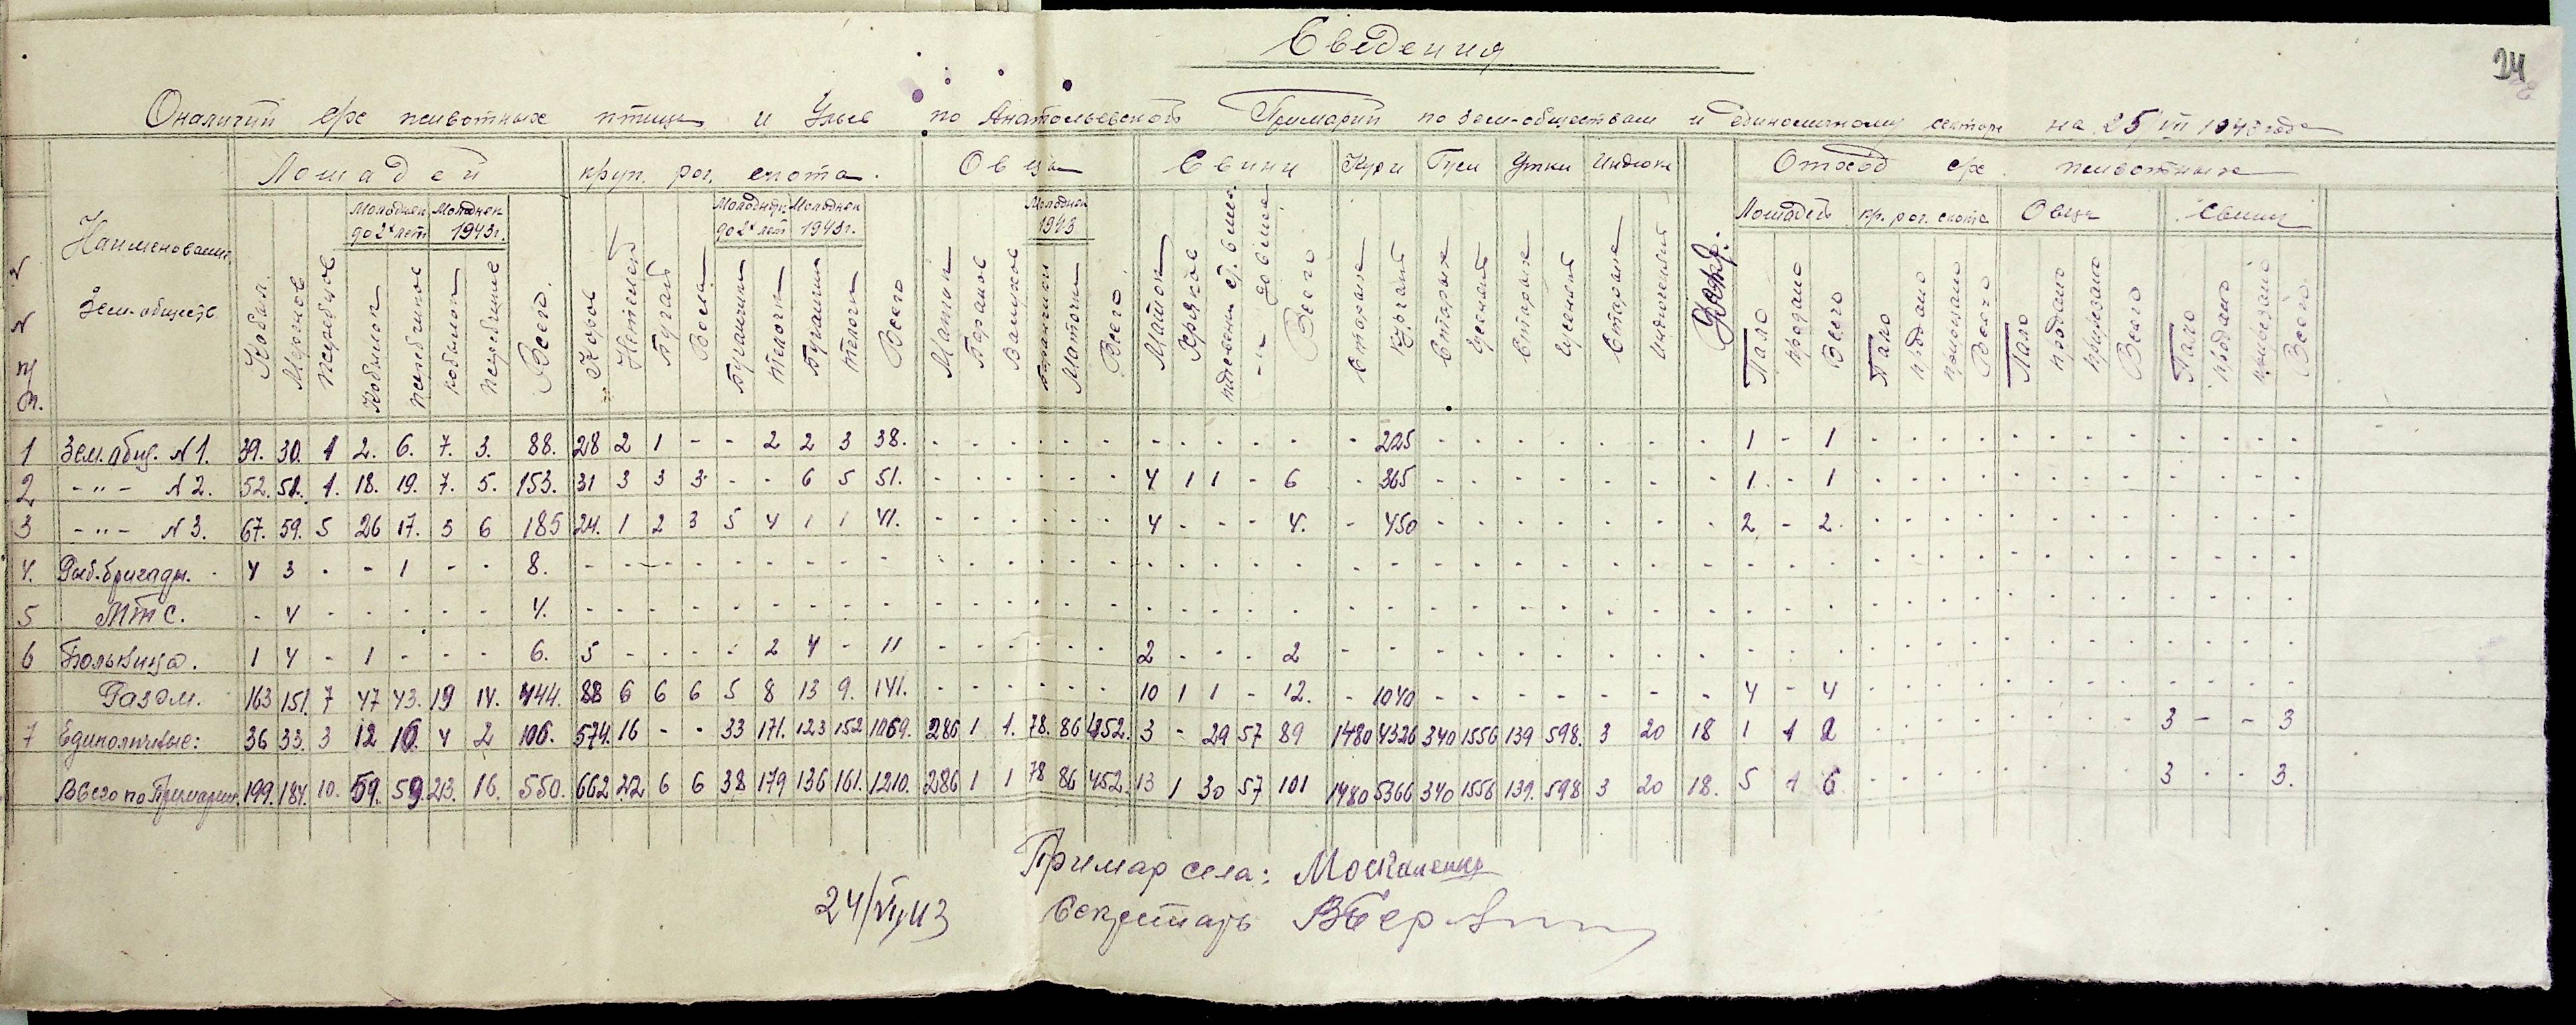 Сведения
24
О наличии с/х животных птицы и Ульев по Анатольевской Примарии по зем-обществам и единоличному сектору на 25/VII 1943 года
№ № п/п. Наименование Зем-обществ Лошадей круп. рог. скота. Овцы Свини Кури Гуси Утки Индюки Отход с/х животных
Молодняк до 2х лет Молодняк 1943г. Молодняк до 2х лет Молодняк 1943г. Молодняк 1943 Лошадей кр. рог. скота Овцы Свини
Кобыл Меринов Жеребцов Кобылок жеребчиков кобылок жеребчиков Всего. Коров Нетелей Бугай Волы Бугайчики Телочки Бугайчики Телочки Всего Маток Баранов Валухов Баранчики Маточки Всего Маток Хряков Всего Старые Курчат Старые Гусенят Старые Старые Индюченят Пало продано Всего Пало продано прирезано Всего Пало продано прирезано Всего Пало продано прирезано Всего
1 Зем. общ. N 1. 39. 30. 1 2. 6. 7. 3. 88. 28 2 1 - - 2 2 3 38. - - - - - - - - - - - - 225 - - - - - - - 1 - 1 - - - - - - - - - - - -
2 -"- N 2. 52. 51. 1. 18. 19. 7. 5. 153. 31 3 3 3 - - 6 5 51. - - - - - - 4 1 1 - 6 - 365 - - - - - - - 1 - 1 - - - - - - - - - - - -
3 -"- N 3. 67. 59. 5 26 17. 5 6 185 24. 1 2 3 5 4 1 1 41. - - - - - - 4 - - - 4. - 450 - - - - - - - 2 - 2. - - - - - - - - - - - -
4. Рыб. бригады. 4 3 - - 1 - - 8. - - - - - - - - - - - - - - - - - - - - - - - - - - - - - - - - - - - - - - - - - - - -
5 МТС. - 4 - - - - - 4. - - - - - - - - - - - - - - - - - - - - - - - - - - - - - - - - - - - - - - - - - - - -
6 Больница. 1 4 - 1 - - - 6. 5 - - - - 2 4 - 11 - - - - - - 2 - - - 2 - - - - - - - - - - - - - - - - - - - - - - - - -
Разом. 163 151. 7 47 43. 19 14. 444. 88 6 6 6 5 8 13 9. 141. - - - - - - 10 1 1 - 12. - 1040 - - - - - - - 4 - 4 - - - - - - - - - - - -
7 Единоличные: 36 33. 3 12 16. 4 2 106. 574. 16 - - 33 171. 123 152 1069. 286 1 1. 78. 86 452. 3 - 29 57 89 1480 4326 340 1556 139 598. 3 20 18 1 1 2 - - - - - - - - 3 - - 3
Всего по Примарии. 199. 184. 10. 59. 59. 23. 16. 550. 662 22 6 6 38 179 136 161. 1210. 286 1 1 78 86 452. 13 1 30 57 101 1480 5366 340 1556 139. 598 3 20 18. 5 1 6 - - - - - - - - 3 - - 3.
Примар села: Москаленко
24/VII 43 Секретарь